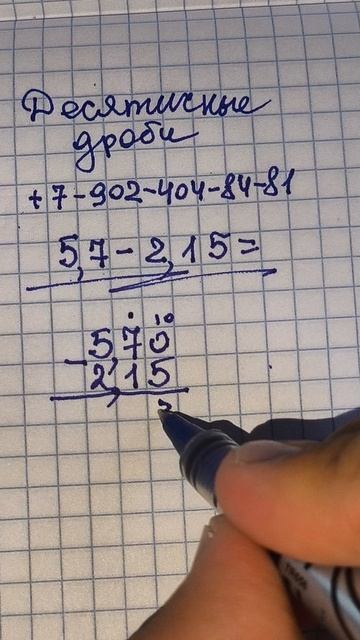 Десятичные
дроби
+7-902-404-84-81
5,7-2,15=
. 10
5,70
-
2,15